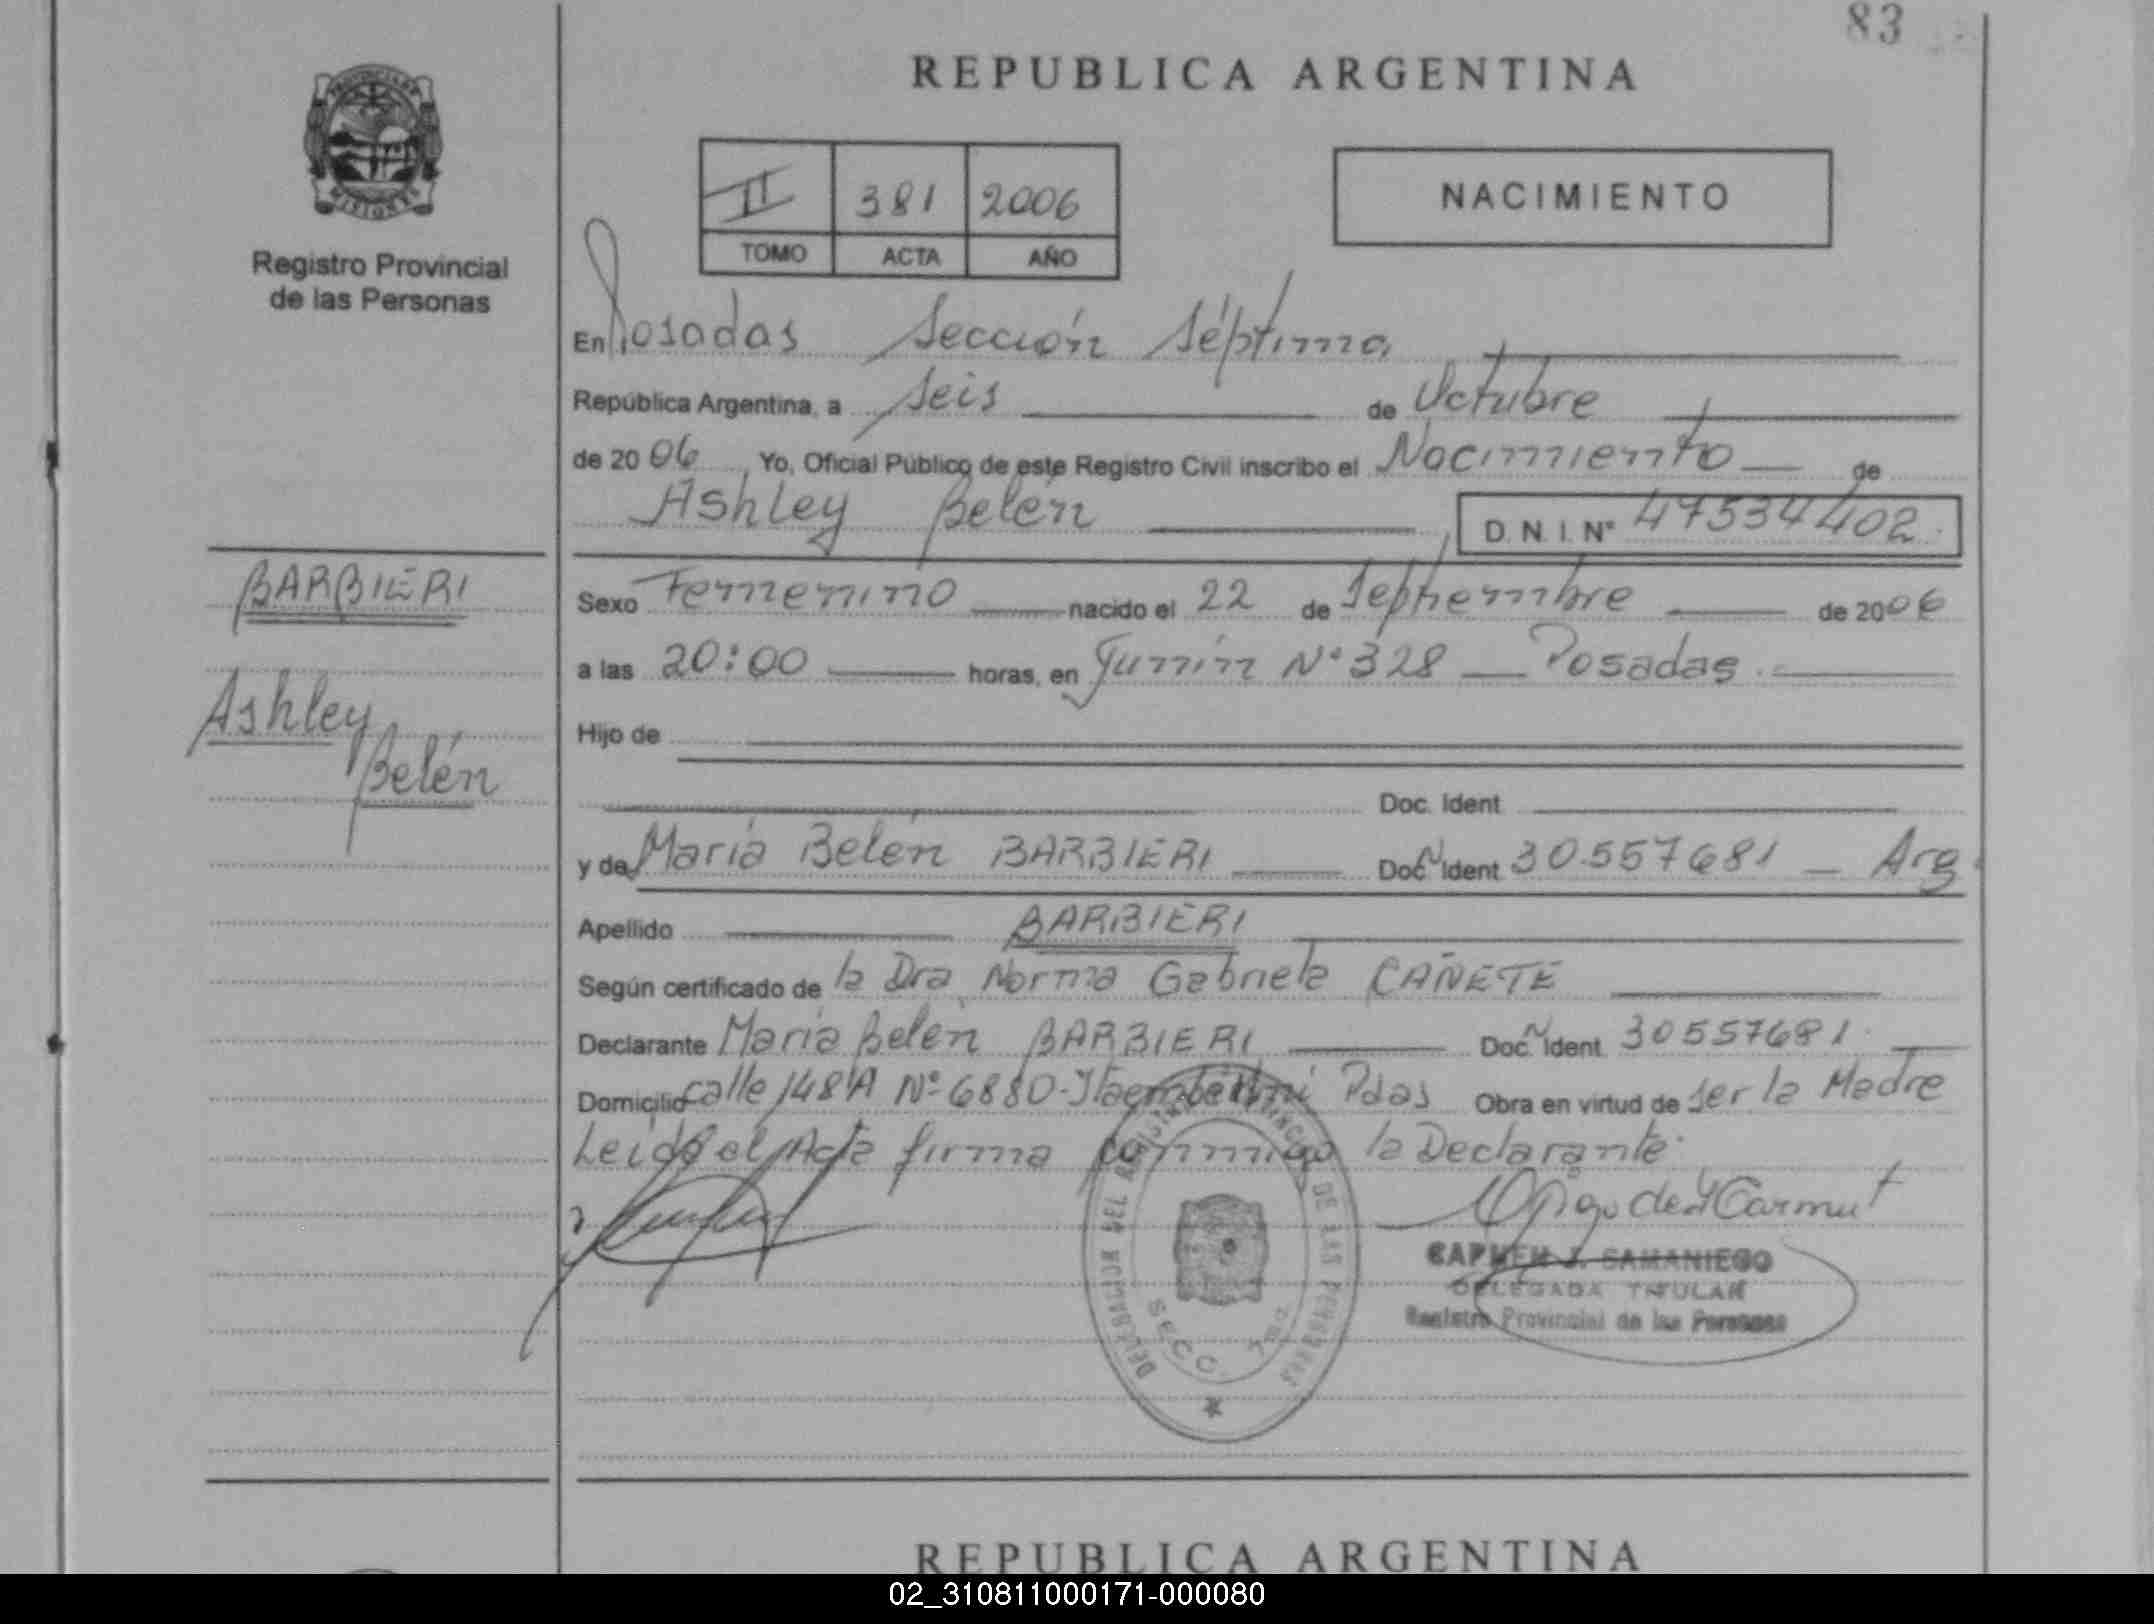 83
REPUBLICA ARGENTINA
PROVINCIA DE
MISIONES
Registro Provincial
de las Personas
II 381 2006
TOMO ACTA AÑO
NACIMIENTO
En Posadas Sección Séptima
República Argentina, a Seis de Octubre
de 2006, Yo, Oficial Público de este Registro Civil inscribo el Nacimiento de
Ashley Belén D.N.I. Nº 47534402.
BARBIERI
Ashley
Belén
Sexo Femenino nacido el 22 de Septiembre de 2006
a las 20:00 horas, en Junín Nº 328 — Posadas.
Hijo de
Doc. Ident
y de María Belén BARBIERI Doc. N Ident 30.557681 — Arg.
Apellido BARBIERI
Según certificado de la Dra. Norma Gabriela CAÑETE
Declarante María Belén BARBIERI Doc. N Ident. 30557681.
Domicilio calle 148 A Nº 6880- Itaembé Miní Pdas Obra en virtud de ser la Madre
Leida el Acta firma conmigo la Declarante.
DELEGACION DEL REGISTRO PROVINCIAL DE LAS PERSONAS
SECC. 7ma.
CARMEN J. SAMANIEGO
DELEGADA TITULAR
Registro Provincial de las Personas
REPUBLICA ARGENTINA
02_310811000171-000080